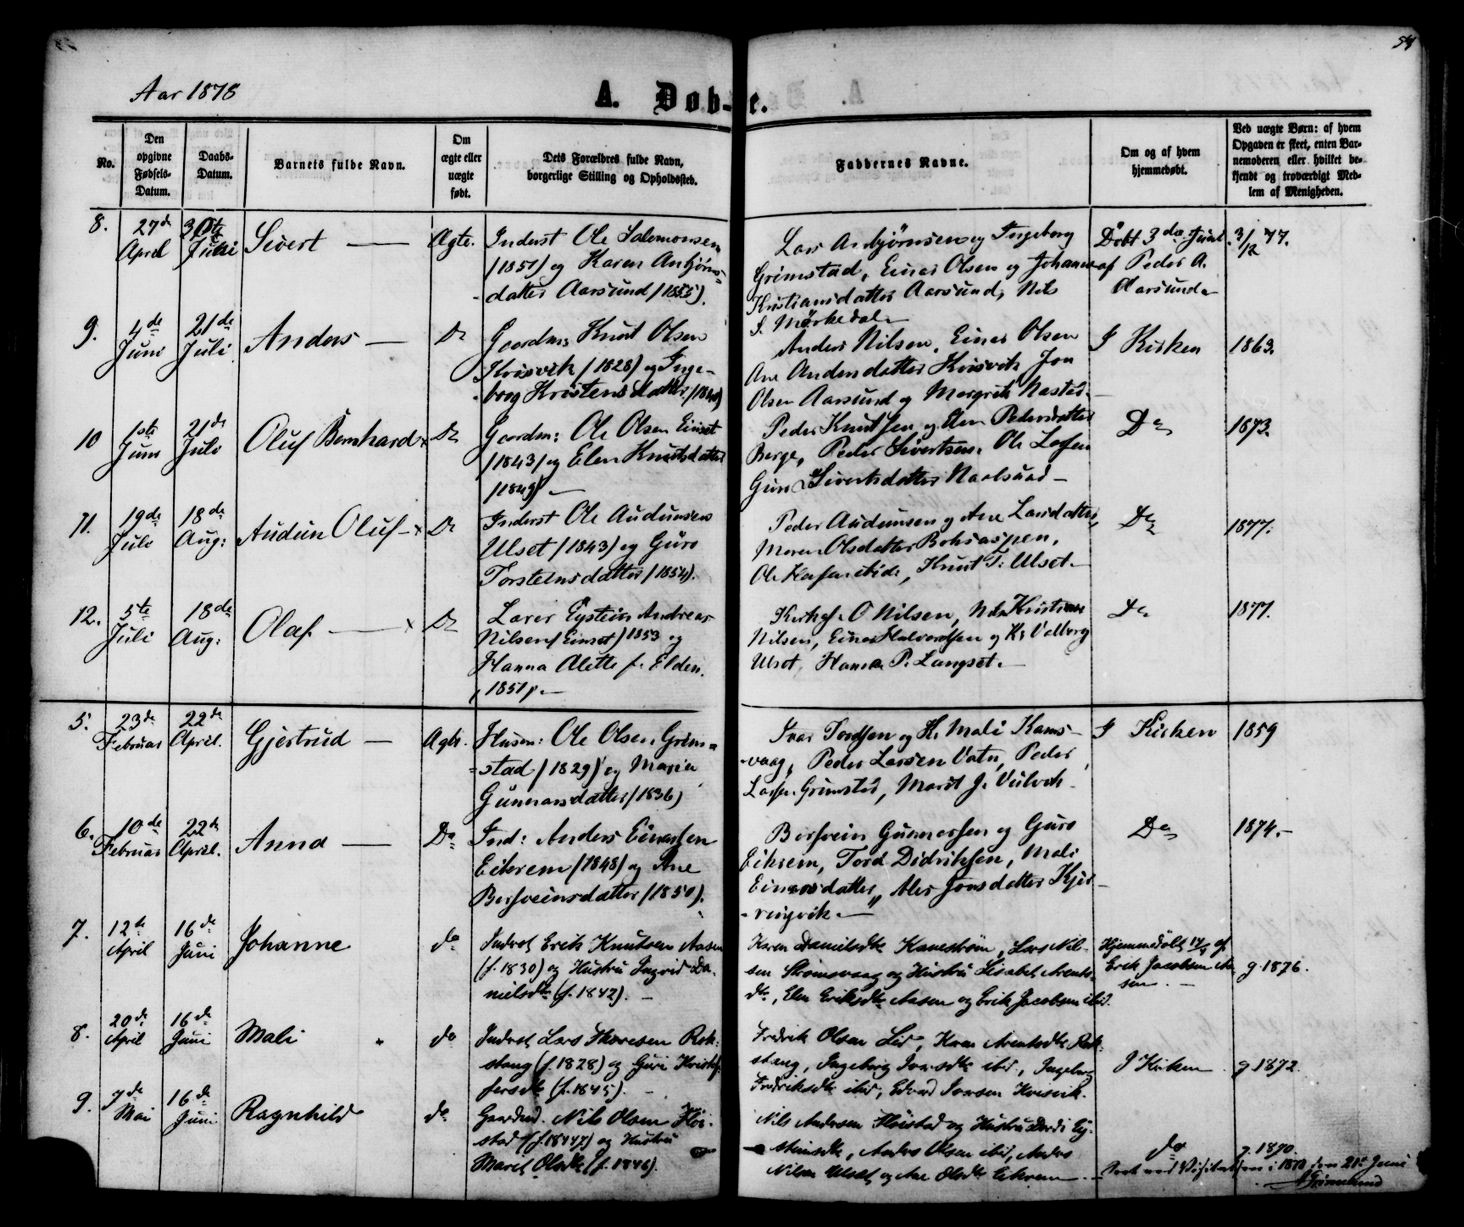 54
Aar 1878
A. Døb-te.
No.
Den opgivne Fødsels-Datum.
Daabs-Datum.
Barnets fulde Navn.
Om ægte eller uægte født.
Dets Forældres fulde Navn, borgerlige Stilling og Opholdssted.
Faddernes Navne.
Om og af hvem hjemmedøbt.
Ved uægte Børn: af hvem Opgaven er skeet, enten Barnemoderen eller hvilket bekjendt og troværdigt Medlem af Menigheden.
8. 27de April Juni Sivert — Ægte. Inderst Ole Salomonsen
(1851) og Karen Anbjørns-
datter Aarsund (1855).
Lars Anbjørnsen og Ingeborg
Grimstad, Einar Olsen og Johanna
Kristiansdatter Aarsund, Nils
I. Mørkedal
Døbt 3die Juni
af Peder A.
Aarsund
3/12 77.
9. 4de Juni 21de Juli Anders — Do Gaardm: Knut Olsen
Kvisvik (1828) og Inge-
borg Kristensdatter
Anders Nilsen, Einar Olsen
Ane Andersdatter Kvisvik Jon
Olsen Aarsund og Margrete Nastad
I Kirken 1863.
10 1ste Juni 21de Juli Oluf Bernhard Do Gaardm: Ole Olsen Einset
(1843) og Elen Knutsdatter
(1849) —
Peder Knutsen og Elen Pedersdatter
Berge, Peder Sivertsen, Ole Larsen
Guru Sivertsdatter Naalsund —
Do 1873.
11. 19de Juli 18de Aug: Audun Oluf — Do Inderst Ole Audunsen
Ulset (1843) og Guro
Torsteinsdatter (1854).
Peder Audunsen og Ane Larsdatter
Maren Olsdatter Boksaspen,
Ole Eide, Knut T. Ulset.
Do 1877.
12. 5te Juli 18de Aug: Olaf — Do Lærer Eystein Andreas
Nilsen (Einset) 1853 og
Hanna Alette f. Elden
1851 —
O Nilsen, Kristine
Nilsen, Einar Halvordsen og Valborg
Ulset, Hanna P. Langset.
Do 1877.
5. 23de Februar 22de April. Gjertrud — Ægte. Husm: Ole Olsen Grim-
stad (1829) og Maria
Gunnarsdatter (1836)
Ivar Tordsen og H. Mali Kams-
vaag, Peder Larsen Vatn, Peder
Larsen Grimstad, Marit J.
I Kirken 1859
6. 10de Februar 22de April. Anna — Do Ind: Anders Einarsen
Eikrem (1848) og Ane
Bersveinsdatter (1850).
Bersvein Gunnarsen og Guro
Eikrem, Tord Didriksen, Mali
Einarsdatter, Jonsdatter Kjør-
ringvik —
Do 1874.-
7. 12te April 16de Juni Johanne do Inderst Erik Knutsen Aasen
(f. 1830) og Hustru Ingrid Da-
nielsdtr (f. 1842). —
Karen Danielsdtr Kamstrøm, Lars Nil-
sen Strømsvaag og Hustru Lisabet Arents-
dtr, Elen Eriksdtr Aasen og Erik Jacobsen ibid.
Hjemmedøbt af
Erik Jacobsen Aa-
sen. —
g. 1876.
8. 20de April 16de Juni Mali do Inderst Lars Thoresen Rok-
stang (f. 1828) og Guri Kristof-
fersdtr (f. 1845). —
Fredrik Olsen Lid, Karen Arentsdtr Rok-
stang, Ingeborg ibid, Ingeborg
Fredriksdtr ibid, Edvard Larsen Kvisvik.
I Kirken g. 1872.
9. 7de Mai 16de Juni Ragnhild do Gaardmd. Nils Olsen Høi-
stad (f. 1847) og Hustru
Marit Olsdtr (f. 1846).
Nils Andersen Høistad og Hustru Dordi Ey-
steinsdtr, Anders Olsen ibid, Anders
Nilsen Ulset og Ane Olsdtr Eikrem. —
do g. 1870.
Seet ved Visitatsen i 1878 den 21de Juni